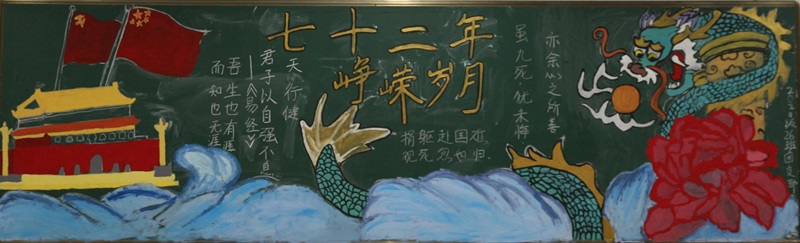 七十二年
峥嵘岁月
天行健
君子以自强不息
——《易经》
吾生也有涯
而知也无涯
亦余心之所善
虽九死犹未悔
捐躯赴国难
视死忽如归
班团支部